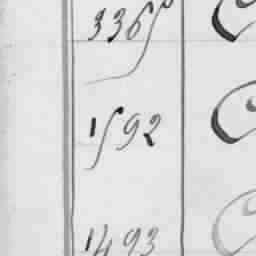 3365
1592
1493